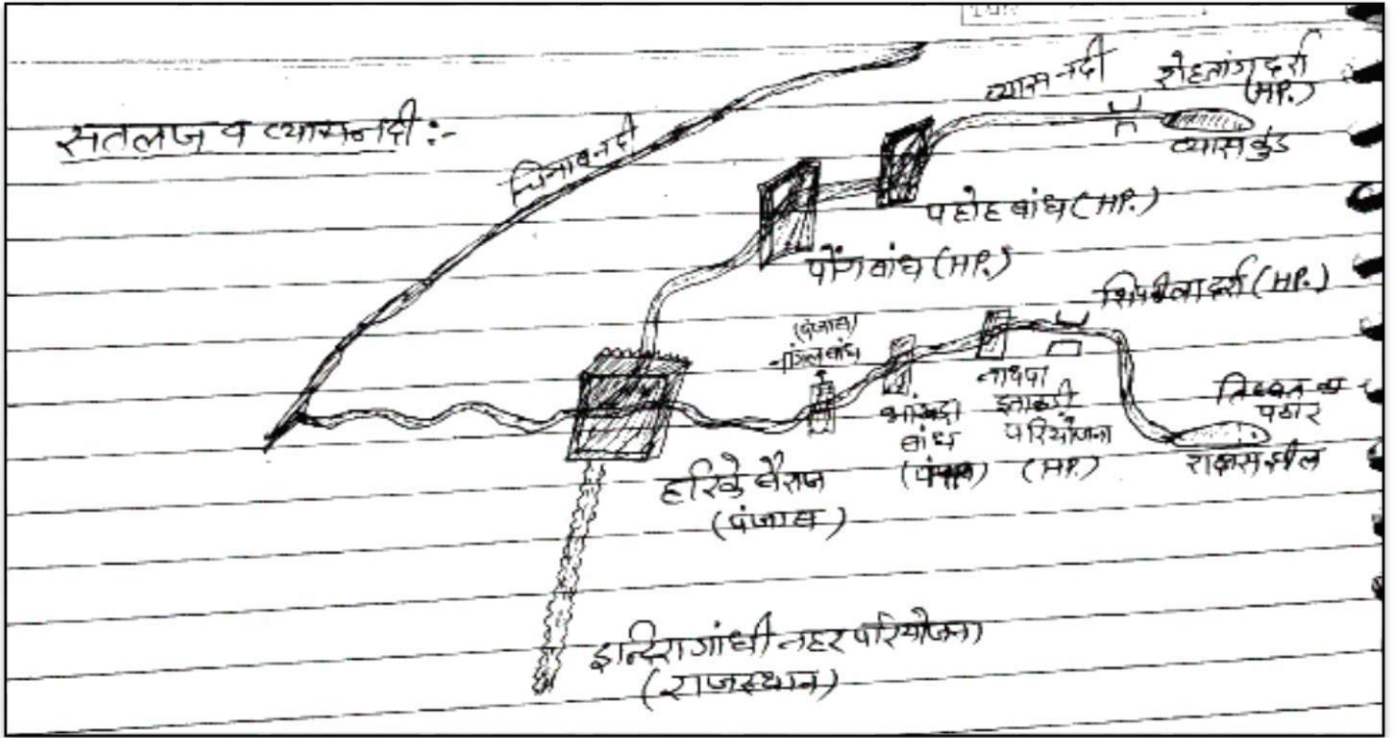 सतलज व व्यास नदी :-
चिनाब नदी
व्यास नदी
रोहतांग दर्रा
(HP.)
व्यास कुंड
पंहोह बांध (HP.)
पोंग बांध (HP.)
शिपकीला दर्रा (HP.)
(पंजाब)
बांध
नाथपा
झाकडी
परियोजना
(HP.)
भाखड़ा
बांध
(पंजाब)
तिब्बत का
पठार
राक्षस झील
हरिके बैराज
(पंजाब)
इन्दिरा गांधी नहर परियोजना
(राजस्थान)